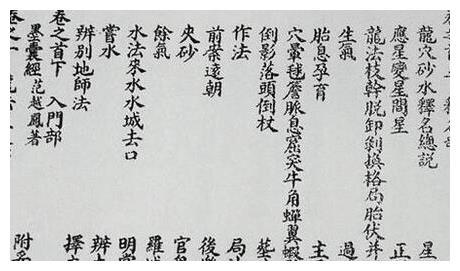 龍穴砂水釋名總說 星
應星變星間星 正
龍法枝幹脫卸剝換格局胎伏并
生氣 過
胎息孕育 主
穴暈毬簷脈息窟突牛角蟬翼蝦
倒影落頭倒杖
作法 局
前案遠朝 後
夾砂 官
餘氣 羅
水法來水水城去口 明
嘗水 辨
辨別地師法 擇
卷之首下 入門部
墨囊經 范越鳳著 附
卷之一